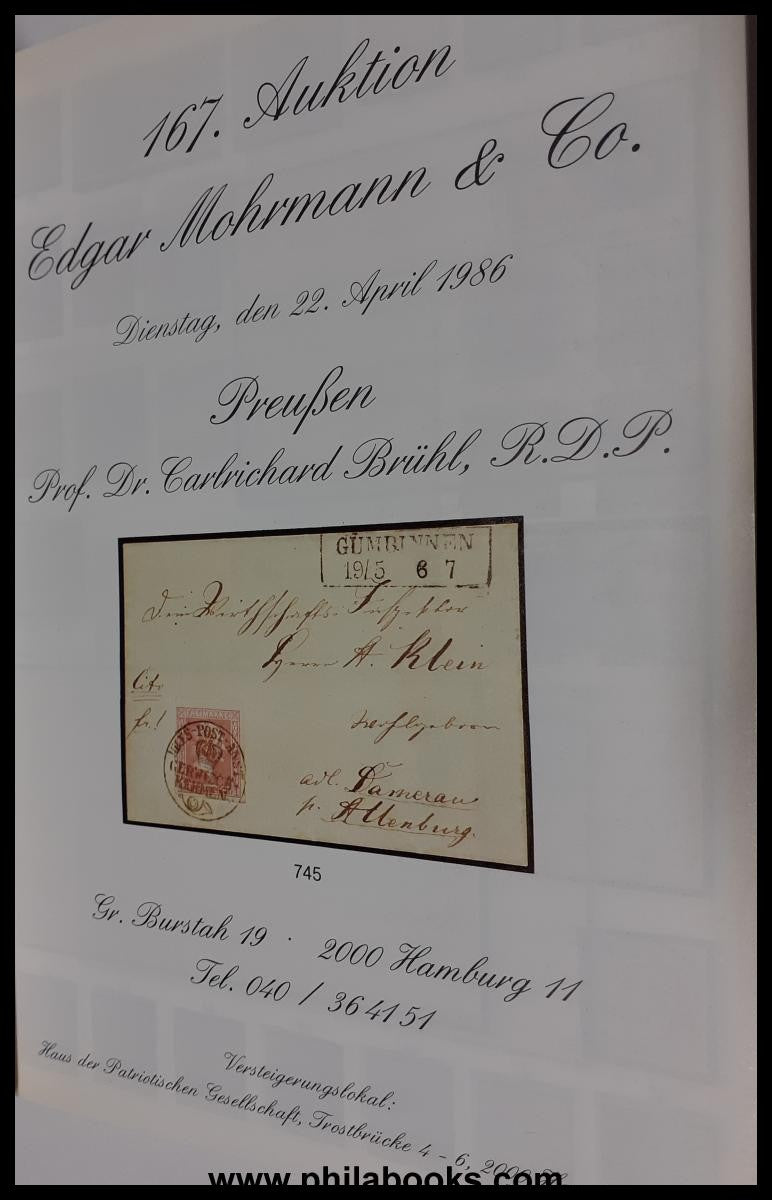 167. Auktion
Edgar Mohrmann & Co.
Dienstag, den 22. April 1986
Preußen
Prof. Dr. Carlrichard Brühl, R.D.P.
GUMBINNEN
19/5 6 7
Herrn A. Klein
Cito
fr!
Wohlgeboren
adl. Damerau
p. Allenburg.
745
Gr. Burstah 19 · 2000 Hamburg 11
Tel. 040 / 36 41 51
Versteigerungslokal:
Haus der Patriotischen Gesellschaft, Trostbrücke 4 - 6, 2000
www.philabooks.com